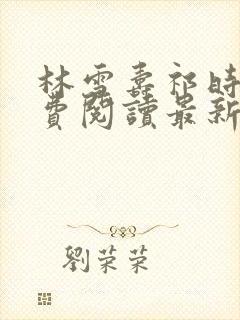 林雪壽祁時
費閱讀最新
劉荣荣